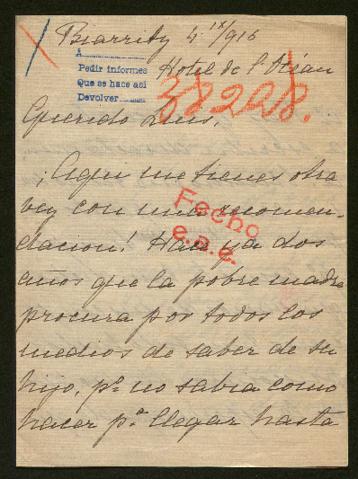 Biarritz 4 IX/916
A
Pedir informes
Que se hace asi
Devolver
Hotel de l'Océan
38298.
Querido Luis,
¡Aqui me tienes otra
vez con una recomen-
dacion! Hace ya dos
Fecho
e.a.e.
años que la pobre madre
procura por todos los
medios de saber de su
hijo, pº no sabia como
hacer pª llegar hasta